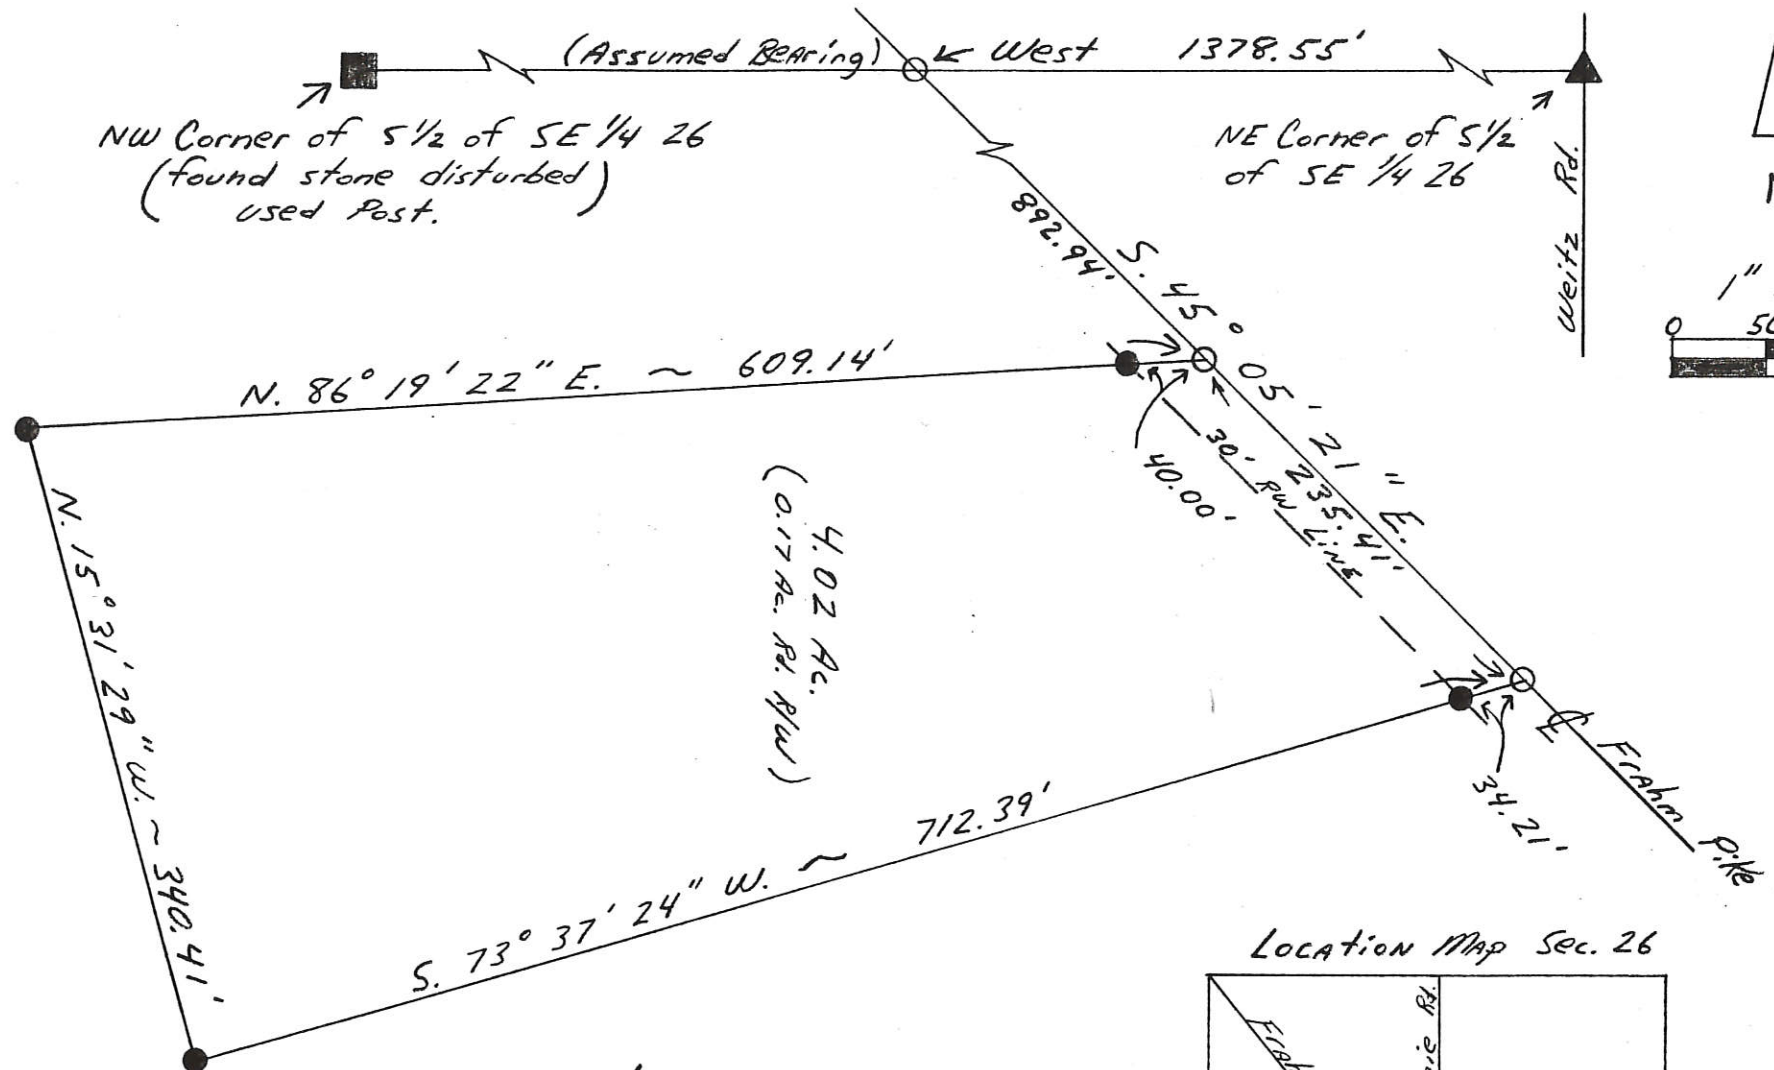 (Assumed Bearing)
West 1378.55'
NW Corner of S 1/2 of SE 1/4 26
(found stone disturbed)
used Post.
NE Corner of S 1/2
of SE 1/4 26
Weitz Rd.
1"
0 50
892.94'
S. 45° 05' 21" E.
235.41'
N. 86° 19' 22" E. ~ 609.14'
40.00'
30' RW Line
4.02 Ac.
(0.17 Ac. Rd. R/W)
N. 15° 31' 29" W. ~ 340.41'
S. 73° 37' 24" W. ~ 712.39'
34.21'
℄ Frahm Pike
Location Map Sec. 26